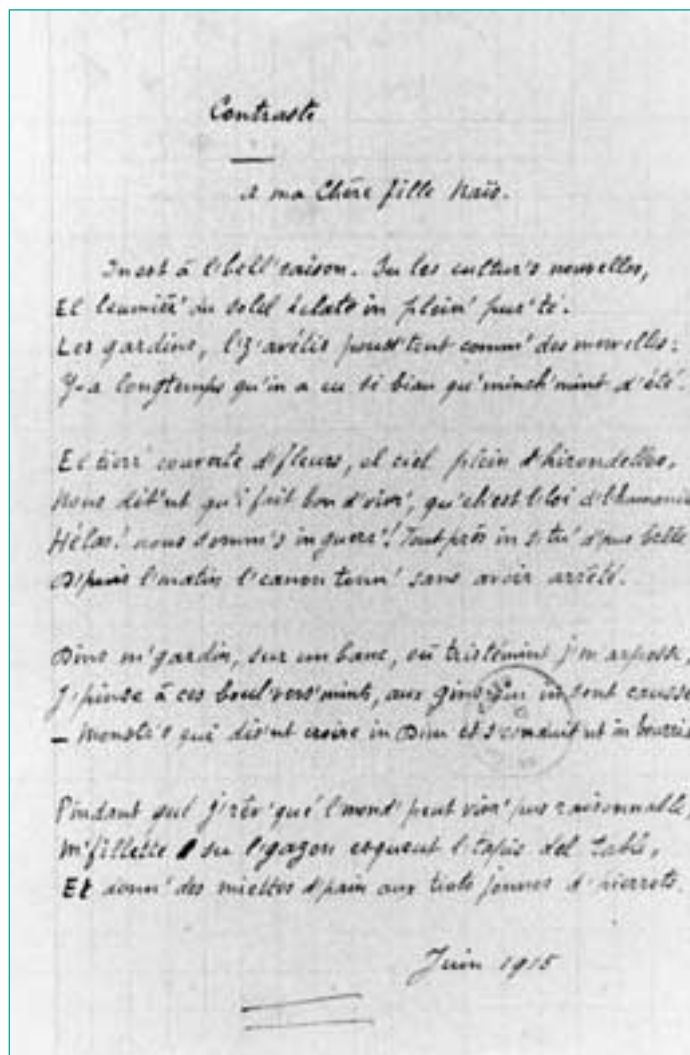 Contraste
A ma Chère fille Naïs.
In est à l'bell' saison. Su les cultur's nouvelles,
El leumièr' du solel éclate in plein' pur'té.
Les gardins, l'z'avétis pouss'tent comm' des
Y-a longtemps qu'in a vu si biau qu'minch'mint d'été.
El tierr' couverte d'fleurs, el ciel plein d'hirondelles,
Nous dit'nt qu'i fait bon d'vivr', qu'ch'est l'loi d'l'humanité
Hélas! nous somm's in guerr'! Tout près in s'tu' d'pus belle
D'puis l'matin l'canon tonn' sans avoir arrêté.
Dins m'gardin, sur un banc, où tristémint j'm'arposse,
J'pinse à ces boul'vers'mints, aux gins qui in sont causse
– Monstr's qui dis'nt croire in Dieu et s'conduis'nt in bourriau
Pindant quel j'rêv' qué l'mond' peut vivr' pus raisonnable,
M'fillette su l'gazon esqueut l'tapis del table,
Et donn' des miettes d'pain aux tiots jonnes d'pierrots.
Juin 1915